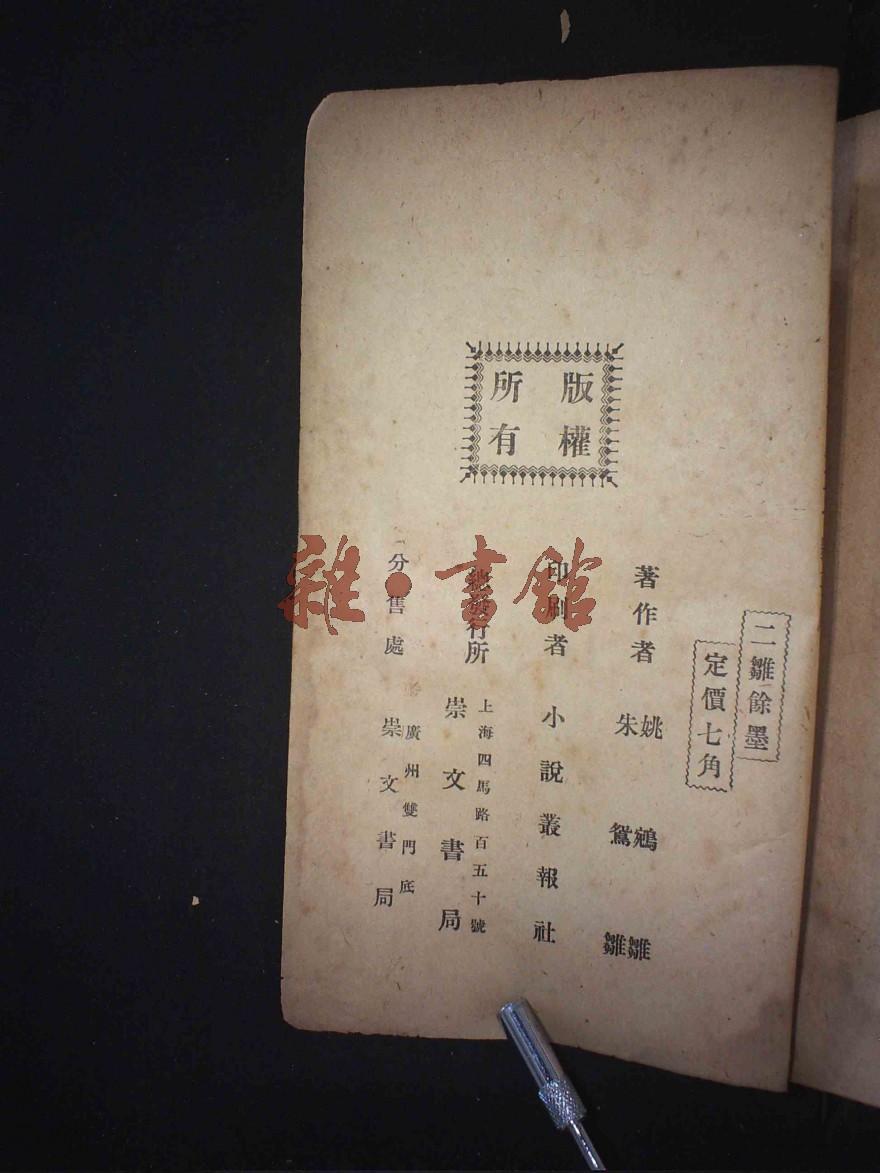 二雛餘墨
定價七角
版權
所有
著作者
姚鵷雛
朱鴛雛
印刷者 小說叢報社
總發行所
上海四馬路百五十號
崇文書局
分售處
廣州雙門底
崇文書局
雜·書館